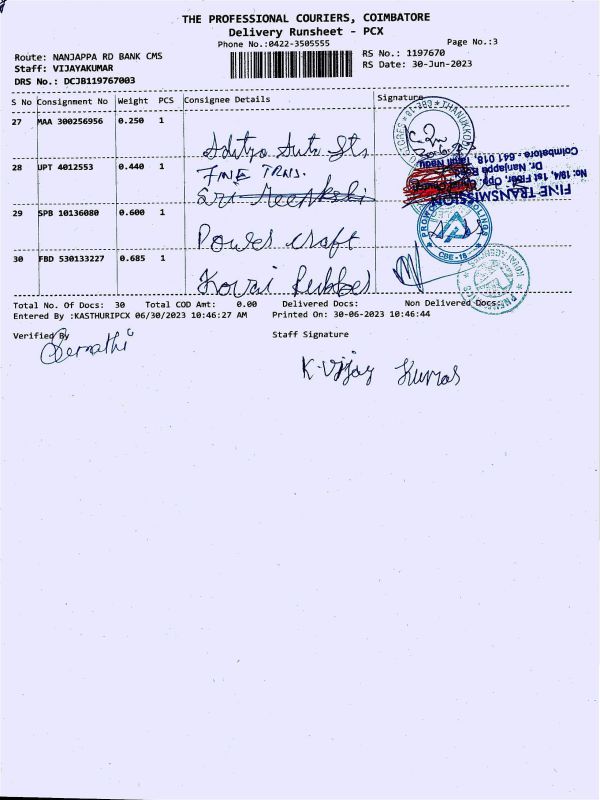 THE PROFESSIONAL COURIERS, COIMBATORE
Delivery Runsheet - PCX
Phone No.:0422-3505555
Page No.:3
Route: NANJAPPA RD BANK CMS
RS No.: 1197670
Staff: VIJAYAKUMAR
RS Date: 30-Jun-2023
DRS No.: DCJB119767003
S No Consignment No Weight PCS Consignee Details Signature
27 MAA 300256956 0.250 1
Aditya Auto Sts
28 UPT 4012553 0.440 1
FINE TRNS.
Sri Meenkshi
29 SPB 10136080 0.600 1
Power craft
30 FBD 530133227 0.685 1
Kovai Rubber
FINE TRANSMISSION
No: 19/4, 1st Floor, Opp.
Dr. Nanjappa Road
Coimbatore - 641 018, Tamil Nadu
CBE - 18
Total No. Of Docs: 30 Total COD Amt: 0.00 Delivered Docs: Non Delivered Docs:
Entered By :KASTHURIPCX 06/30/2023 10:46:27 AM Printed On: 30-06-2023 10:46:44
Verified By
Staff Signature
K. Vijay Kumar